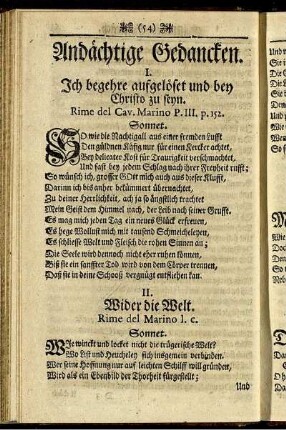 (54)
Andächtige Gedancken.
I.
Ich begehre aufgelöset und bey
Christo zu seyn.
Rime del Cav. Marino P. III. p. 152.
Sonnet.
SO wie die Nachtigall aus einer fremden Lufft
Den güldnen Käfig nur für einen Kercker achtet,
Bey delicater Kost für Traurigkeit verschmachtet,
Und fast bey jedem Schlag nach ihrer Freyheit rufft;
So wünsch ich, grosser GOtt mich auch aus dieser Klufft,
Darinn ich bis anher bekümmert übernachtet,
Zu deiner Herrlichkeit, ach ja so ängstlich trachtet
Mein Geist dem Himmel nach, der Leib nach seiner Grufft.
Es mag mich jeden Tag ein neues Glück erfreuen,
Es hege Wollust mich mit tausend Schmeicheleyen,
Es schliesse Welt und Fleisch die rohen Sinnen an;
Die Seele wird dennoch nicht eher ruhen können,
Biß sie ein sanffter Tod wird von dem Cörper trennen,
Daß sie in deine Schooß vergnügt entfliehen kan.
II.
Wider die Welt.
Rime del Marino l. c.
Sonnet.
WIe winckt und locket nicht die trügerische Welt?
Wo List und Heucheley sich insgemein verbinden.
Wer seine Hoffnung nur auf leichten Schilff will gründen,
Wird als ein Ebenbild der Thorheit fürgestellt;
Und